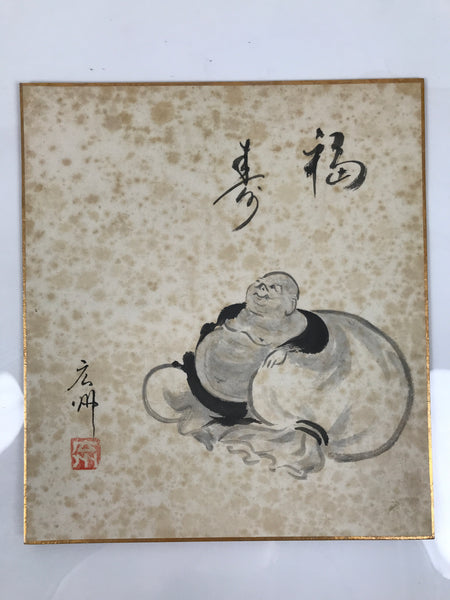 福
寿
広州